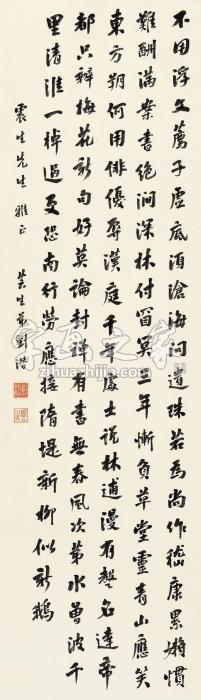 不用浮文薦子虛底須滄海問遺珠若為尚作嵇康累嬾慣
難酬滿案書絕澗深林付窅冥三年慚負草堂靈青山應笑
東方朔何用俳優辱漢庭千年處士說林逋漫有聲名達帝
都只辦梅花新句好莫論封禪有書無春風次第水曾波千
里清淮一棹過更恐南行勞應接隋堤新柳似新鵝
震生先生雅正 芸生弟劉濬